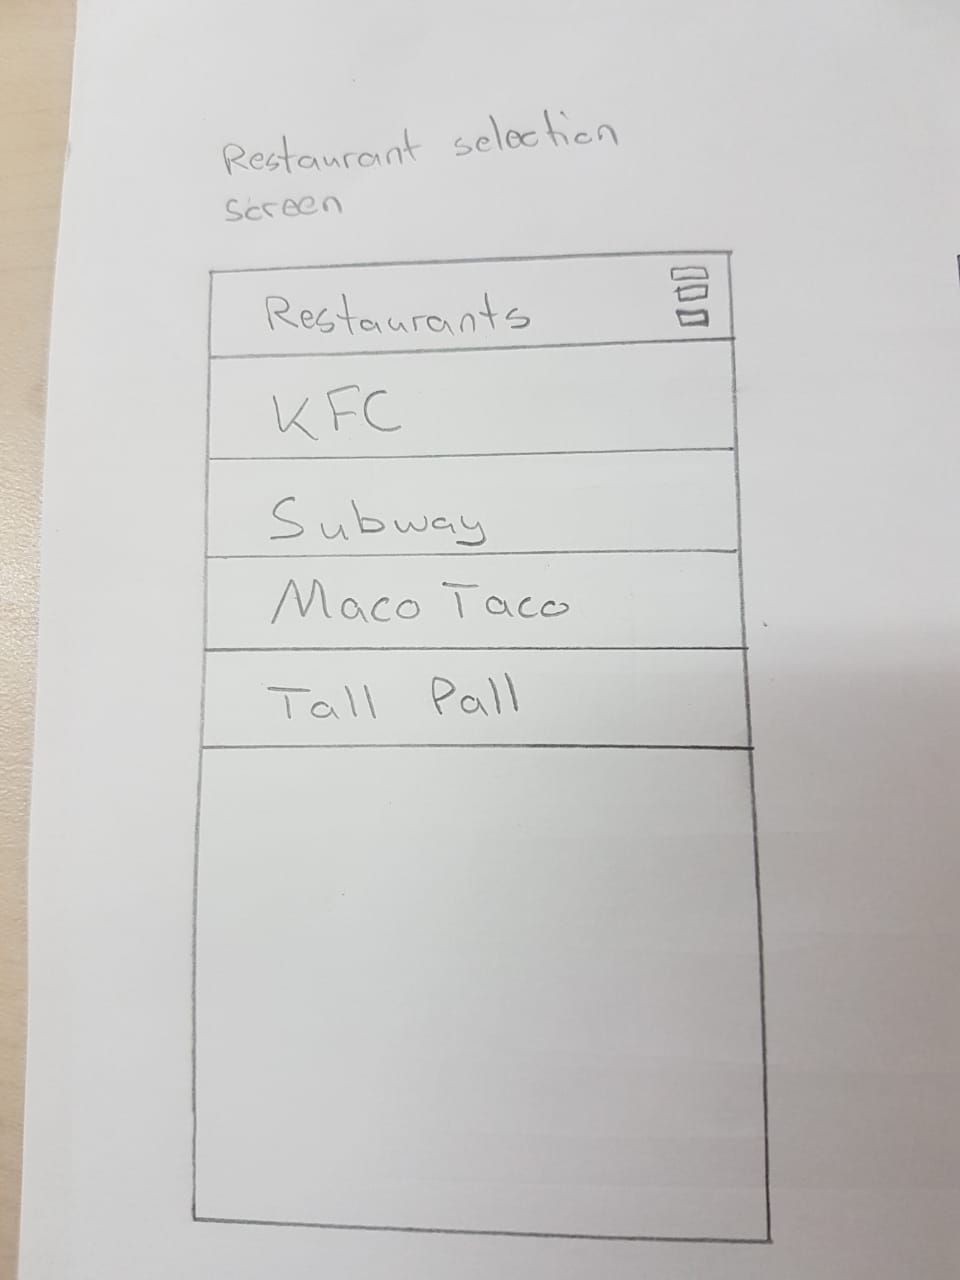 Restaurant selection
screen
Restaurants
KFC
Subway
Maco Taco
Tall Pall